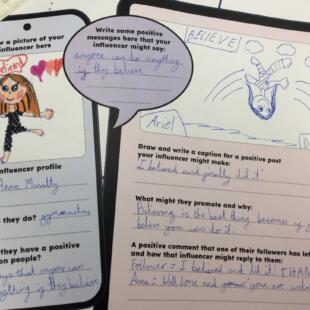 w a picture of your
influencer here
Believe
influencer profile
Anna
they do? gymnastics
they have a positive
on people?
says that anyone can
anything is they believe
Write some positive
messages here that your
influencer might say:
anyone can do anything
is they believe
BELIEVE
Ariel
D
Draw and write a caption for a positive post
your influencer might make:
I believed and finally did it
What might they promote and why:
Believing is the best thing because is y
believe you can do it.
A positive comment that one of their followers has left
and how that influencer might reply to them:
Follower = I believed and did it! THAN
Anna = Well done and your you are welc